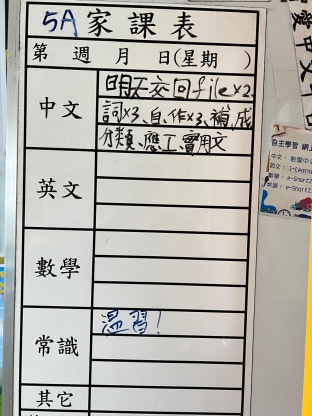 5A家課表
第 週 月 日(星期 )
中文
明天交回file×2
詞×3、自、作×3、補、成
分類、應工、實用文
英文
數學
常識
溫習!
其它
自主學習 網上